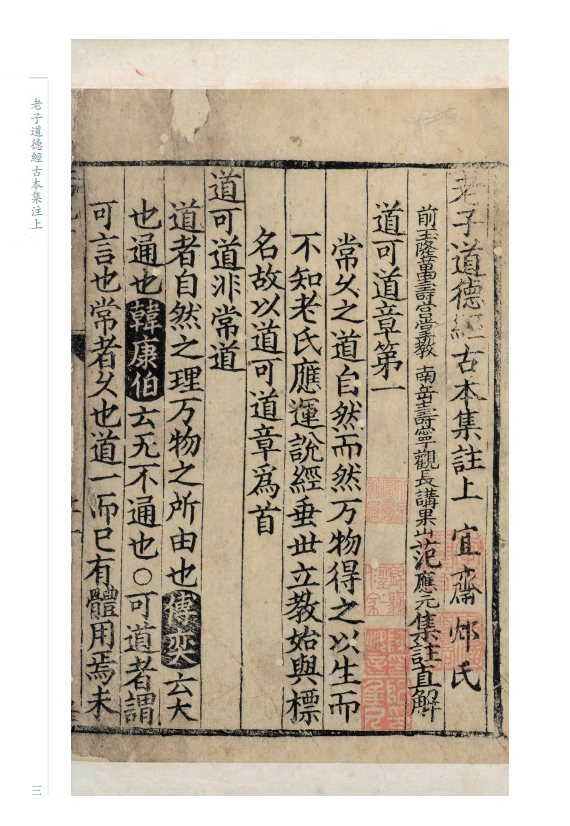 老子道德經古本集註上
三
老子道德經古本集註上 宜齋邧氏
前玉隆萬壽宮掌教 南岳壽寧觀長講果山范應元集註直解
道可道章第一
常久之道自然而然万物得之以生而
不知老氏應運說經垂世立教始與標
名故以道可道章爲首
道可道非常道
道者自然之理万物之所由也傅奕云大
也通也韓康伯云无不通也○可道者謂
可言也常者久也道一而巳有體用焉未